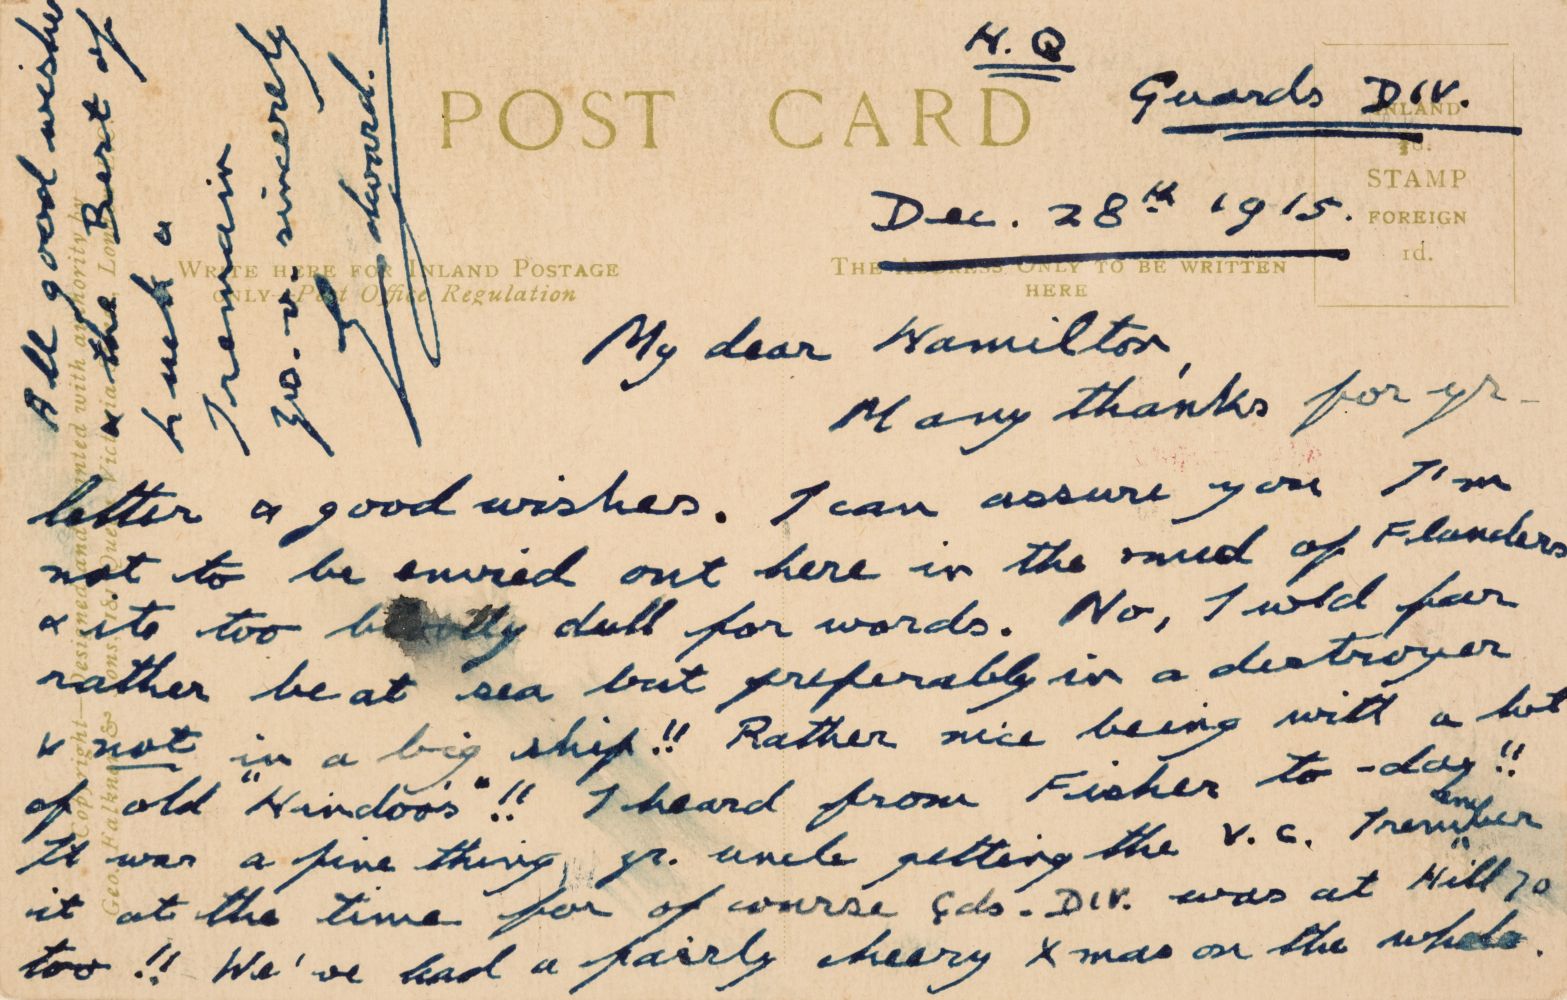 H.Q
Guards DIV.
Dec. 28th 1915.
POST CARD
INLAND
STAMP
FOREIGN
1d.
WRITE HERE FOR INLAND POSTAGE
ONLY—Post Office Regulation
THE ADDRESS ONLY TO BE WRITTEN
HERE
My dear Hamilton,
Many thanks for yr-
letter & good wishes. I can assure you I'm
not to be envied out here in the mud of Flanders
& its too dull for words. No, I wld far
rather be at sea but preferably in a destroyer
& not in a big ship!! Rather nice being with a lot
of old "Hindoo's"!! I heard from Fisher to-day!!
It was a fine thing yr. uncle getting the V.C. I remember
it at the time for of course Gds. DIV. was at "Hill 70
too!! We've had a fairly cheery Xmas on the whole.
All good wishes
& the Best of
luck &
I remain
yrs. v. sincerely
Edward.
Copyright—Designed and printed with authority by
Geo. Falkner & Sons 181 Queen Victoria